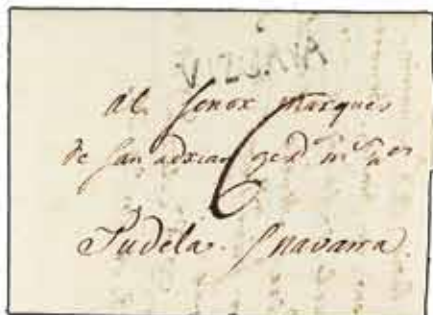 VIZCAYA
Al Señor Marques
de San Adrian
6
Tudela. Navarra.